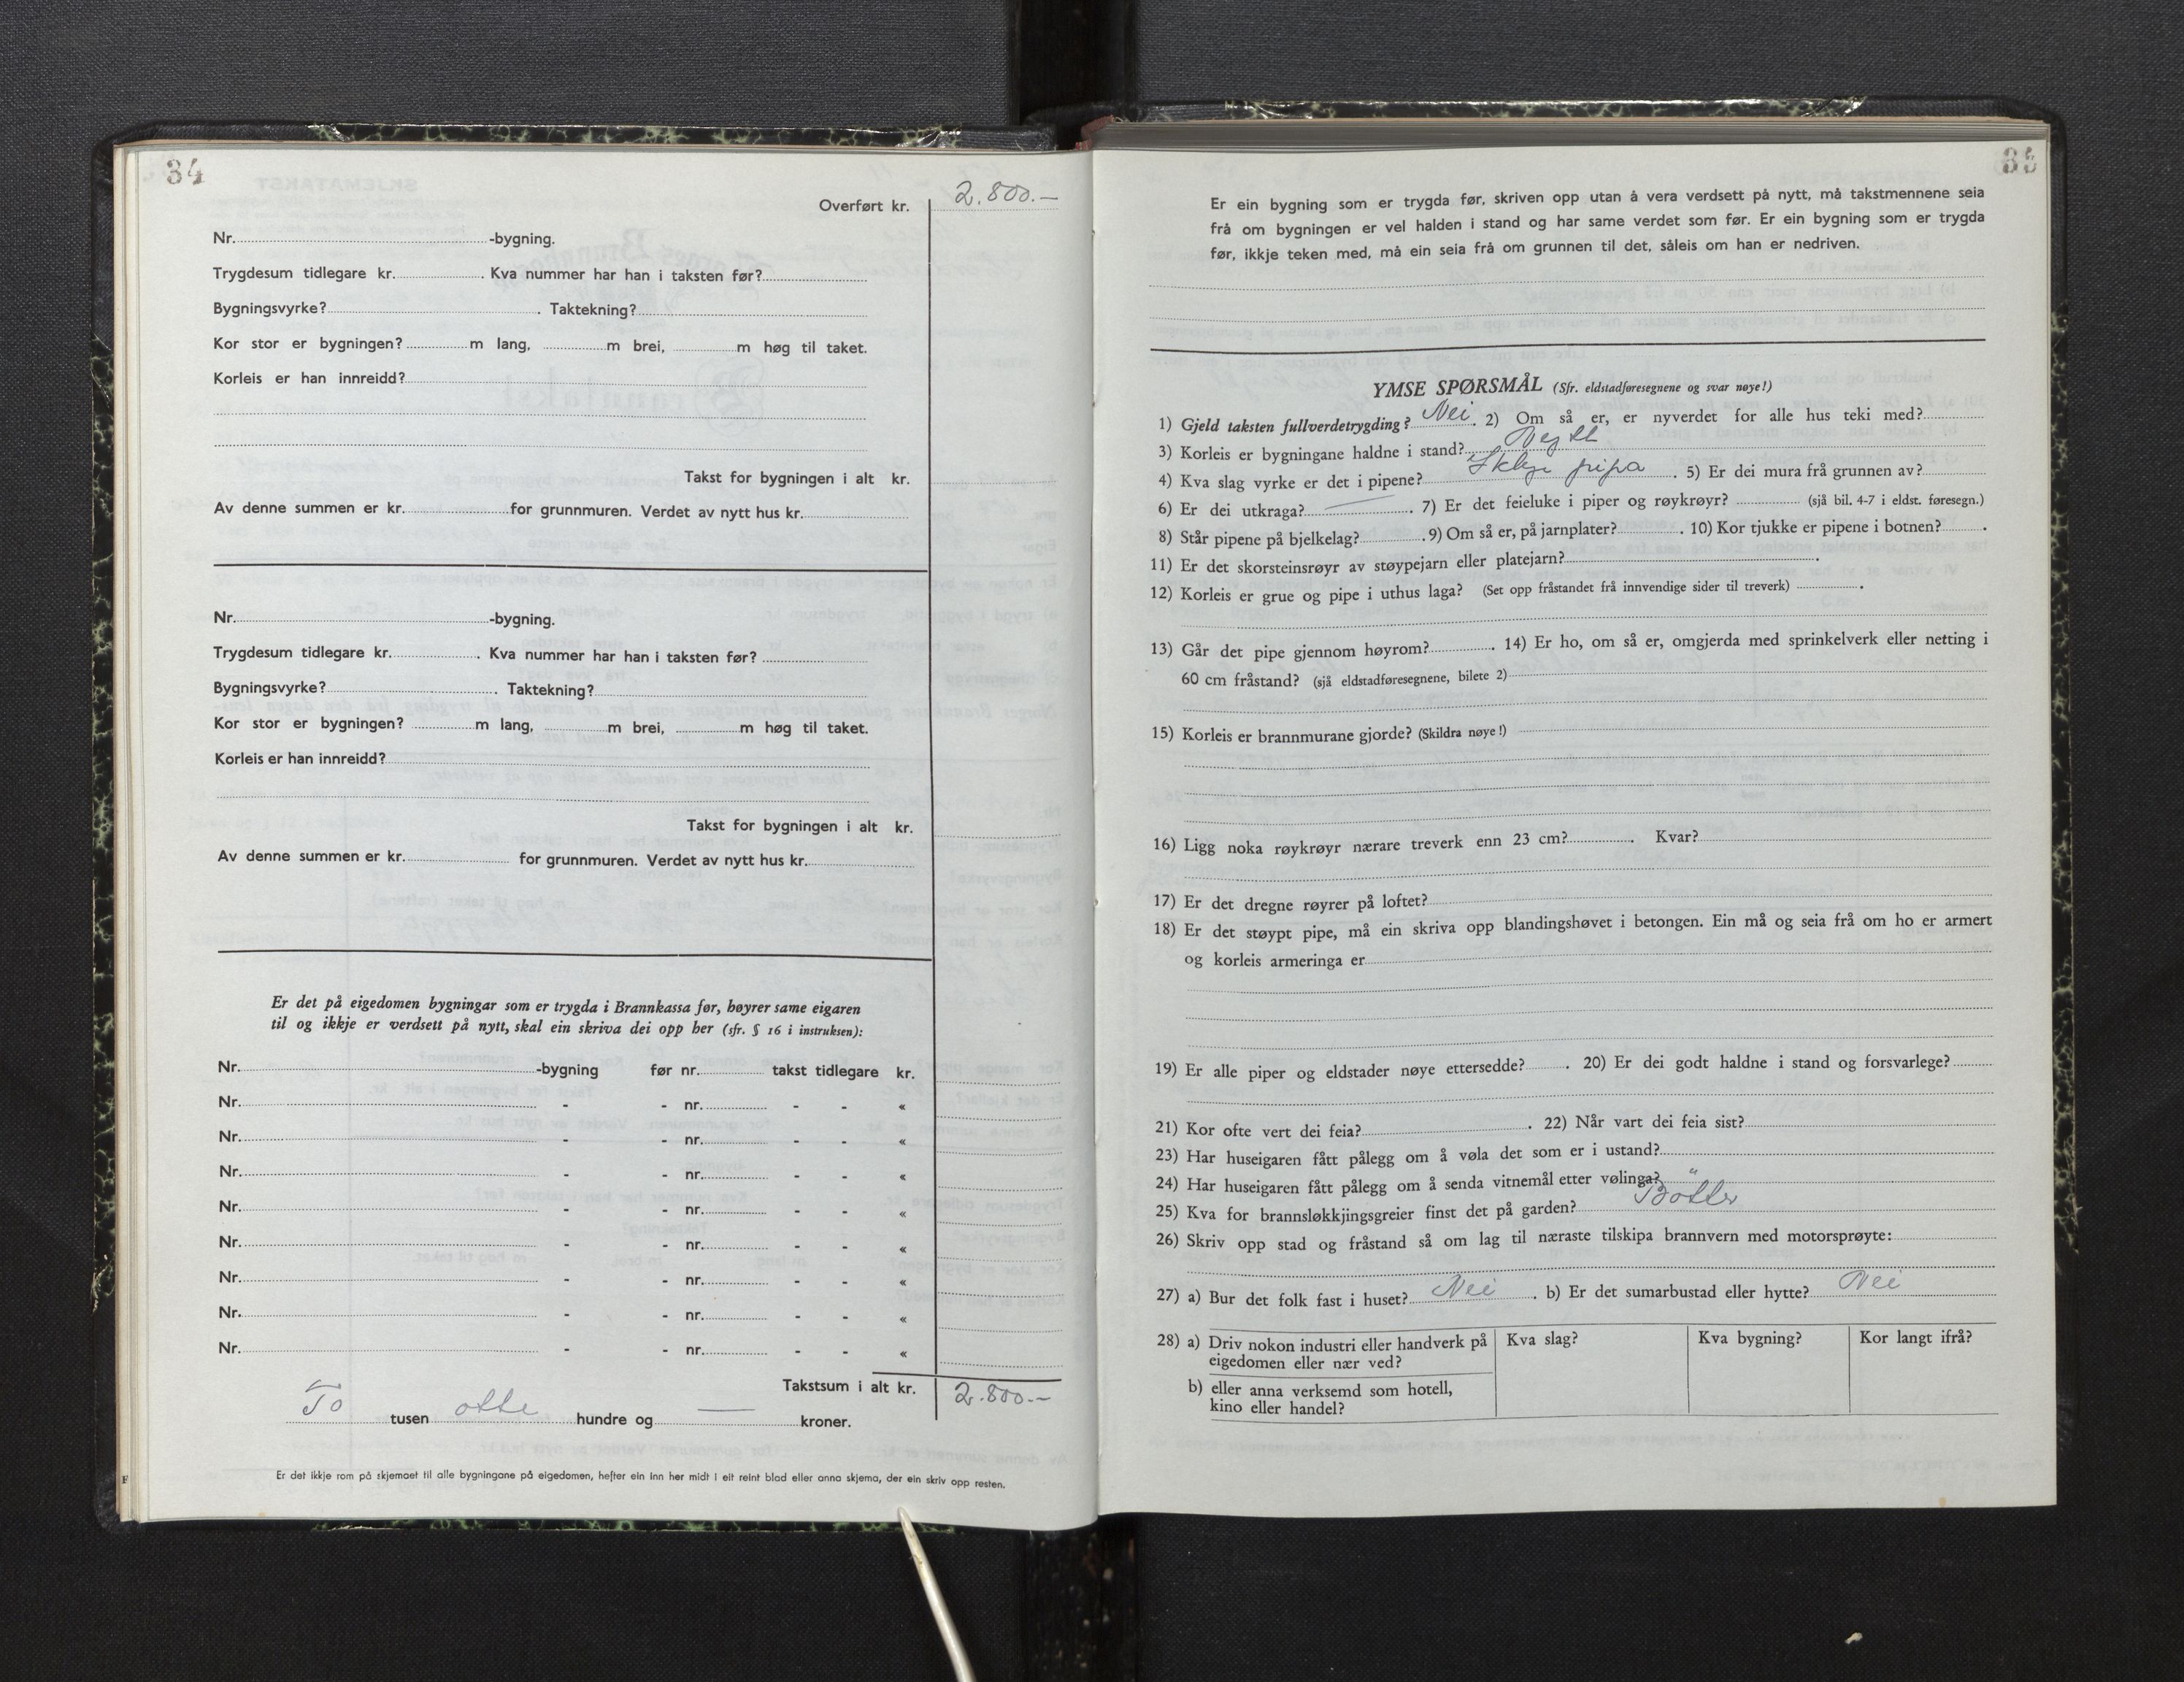 34
Overført kr. 2.800.—
Nr. -bygning.
Trygdesum tidlegare kr. . Kva nummer har han i taksten før?
Bygningsvyrke? . Taktekning?
Kor stor er bygningen? m lang, m brei, m høg til taket.
Korleis er han innreidd?
Takst for bygningen i alt kr.
Av denne summen er kr. for grunnmuren. Verdet av nytt hus kr.
Nr. -bygning.
Trygdesum tidlegare kr. . Kva nummer har han i taksten før?
Bygningsvyrke? . Taktekning?
Kor stor er bygningen? m lang, m brei, m høg til taket.
Korleis er han innreidd?
Takst for bygningen i alt kr.
Av denne summen er kr. for grunnmuren. Verdet av nytt hus kr.
Er det på eigedomen bygningar som er trygda i Brannkassa før, høyrer same eigaren
til og ikkje er verdsett på nytt, skal ein skriva dei opp her (sfr. § 16 i instruksen):
Nr. -bygning før nr. takst tidlegare kr.
Nr. - - nr. - - «
Nr. - - nr. - - «
Nr. - - nr. - - «
Nr. - - nr. - - «
Nr. - - nr. - - «
Nr. - - nr. - - «
Nr. - - nr. - - «
Nr. - - nr. - - «
Takstsum i alt kr. 2.800.—
To tusen otte hundre og — kroner.
Er det ikkje rom på skjemaet til alle bygningane på eigedomen, hefter ein inn her midt i eit reint blad eller anna skjema, der ein skriv opp resten.
F
35
Er ein bygning som er trygda før, skriven opp utan å vera verdsett på nytt, må takstmennene seia
frå om bygningen er vel halden i stand og har same verdet som før. Er ein bygning som er trygda
før, ikkje teken med, må ein seia frå om grunnen til det, såleis om han er nedriven.
YMSE SPØRSMÅL (Sfr. eldstadføresegnene og svar nøye!)
1) Gjeld taksten fullverdetrygding? Nei . 2) Om så er, er nyverdet for alle hus teki med?
3) Korleis er bygningane haldne i stand?
4) Kva slag vyrke er det i pipene? pipa . 5) Er dei mura frå grunnen av?
6) Er dei utkraga? — . 7) Er det feieluke i piper og røykrøyr? (sjå bil. 4-7 i eldst. føresegn.)
8) Står pipene på bjelkelag? . 9) Om så er, på jarnplater? . 10) Kor tjukke er pipene i botnen? .
11) Er det skorsteinsrøyr av støypejarn eller platejarn? .
12) Korleis er grue og pipe i uthus laga? (Set opp fråstandet frå innvendige sider til treverk) .
13) Går det pipe gjennom høyrom? . 14) Er ho, om så er, omgjerda med sprinkelverk eller netting i
60 cm fråstand? (sjå eldstadføresegnene, bilete 2)
15) Korleis er brannmurane gjorde? (Skildra nøye!)
16) Ligg noka røykrøyr nærare treverk enn 23 cm? . Kvar?
17) Er det dregne røyrer på loftet?
18) Er det støypt pipe, må ein skriva opp blandingshøvet i betongen. Ein må og seia frå om ho er armert
og korleis armeringa er
19) Er alle piper og eldstader nøye ettersedde? . 20) Er dei godt haldne i stand og forsvarlege?
21) Kor ofte vert dei feia? . 22) Når vart dei feia sist?
23) Har huseigaren fått pålegg om å vøla det som er i ustand?
24) Har huseigaren fått pålegg om å senda vitnemål etter vølinga? "
25) Kva for brannsløkkjingsgreier finst det på garden? Bøtter
26) Skriv opp stad og fråstand så om lag til næraste tilskipa brannvern med motorsprøyte:
27) a) Bur det folk fast i huset? Nei . b) Er det sumarbustad eller hytte? Nei
28) a) Driv nokon industri eller handverk på
eigedomen eller nær ved?
Kva slag? Kva bygning? Kor langt ifrå?
b) eller anna verksemd som hotell,
kino eller handel?